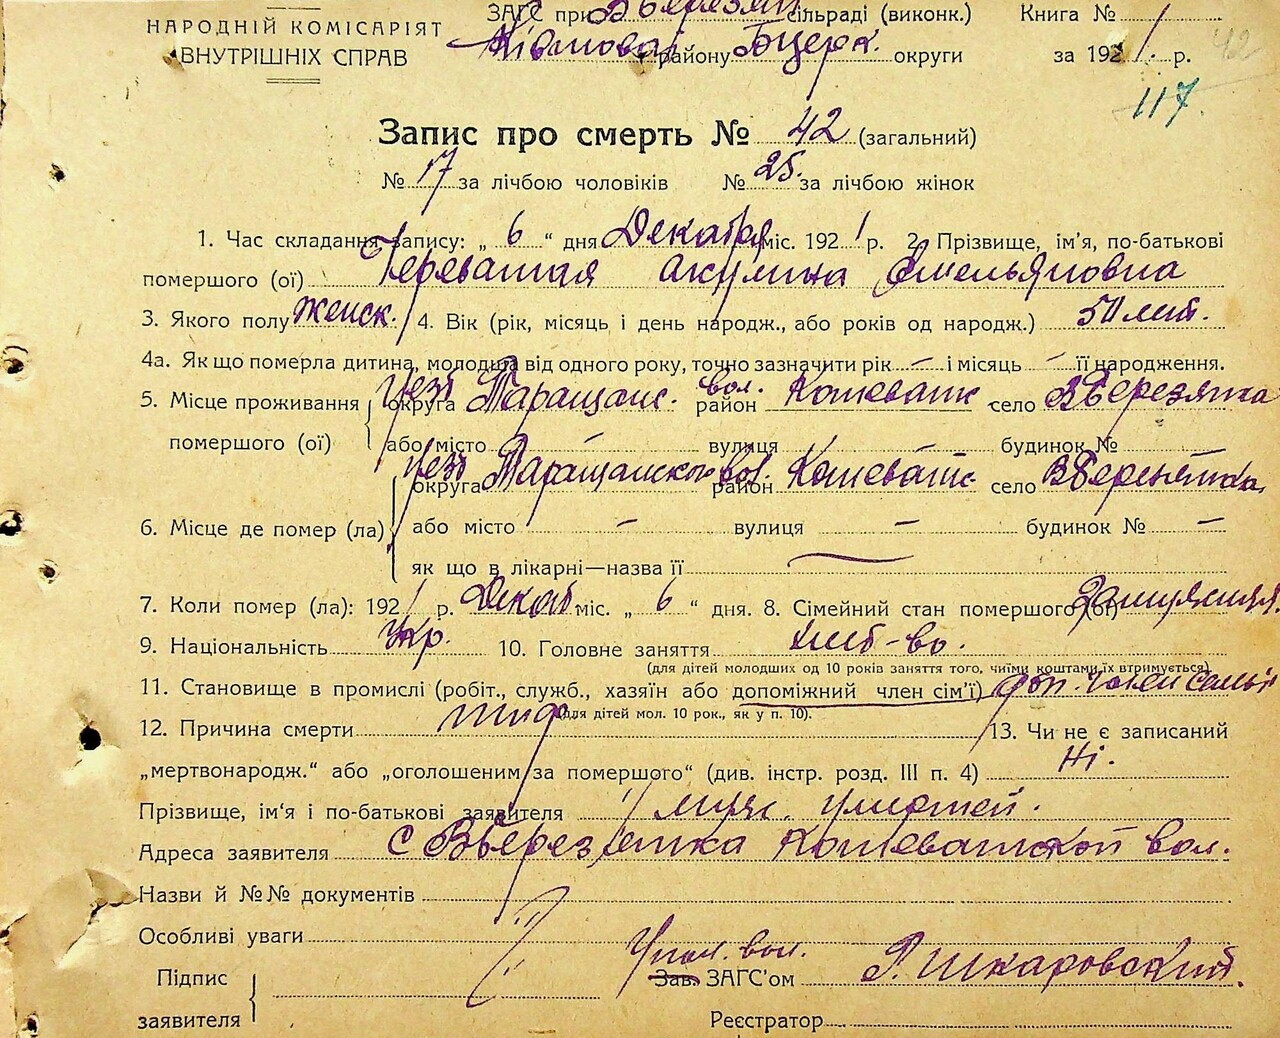 НАРОДНІЙ КОМІСАРІЯТ
ВНУТРІШНІХ СПРАВ
ЗАГС при сільраді (виконк.)
району Бцерк. округи
Книга № 1
за 1921 р.
42
117.
Запис про смерть № 42 (загальний)
№ 17 за лічбою чоловіків № 25. за лічбою жінок
1. Час складання запису: „ 6 “ дня Декабря міс. 1921 р. 2. Прізвище, ім’я, по-батькові
помершого (ої) Череватая Акулина Емельяновна
3. Якого полу женск. 4. Вік (рік, місяць і день народж., або років од народж.) 50 лет.
4а. Як що померла дитина, молодша від одного року, точно зазначити рік — і місяць — її народження.
5. Місце проживання округа уезд Таращанс. район вол. Кошеватс село ВБерезянка
помершого (ої) або місто — вулиця — будинок № —
округа уезд Таращанского район вол. Кошеватс. село
6. Місце де помер (ла) або місто — вулиця — будинок № —
як що в лікарні—назва її —
7. Коли помер (ла): 1921 р. Декаб міс. „ 6 “ дня. 8. Сімейний стан помершого (ої) Замужняя.
9. Національність Укр. 10. Головне заняття хлеб-во.
(для дітей молодших од 10 років заняття того, чиїми коштами їх втримується)
11. Становище в промислі (робіт., служб., хазяїн або допоміжний член сім’ї) доп. член семьи
(для дітей мол. 10 рок., як у п. 10).
12. Причина смерти тиф 13. Чи не є записаний
„мертвонародж.“ або „оголошеним за помершого“ (див. інстр. розд. III п. 4) Ні.
Прізвище, ім‘я і по-батькові заявителя муж умершей.
Адреса заявителя с ВБерезянка Кошеватской вол.
Назви й №№ документів
Особливі уваги
Підпис
заявителя
вол.
Зав. ЗАГС’ом Шкаровский.
Реєстратор